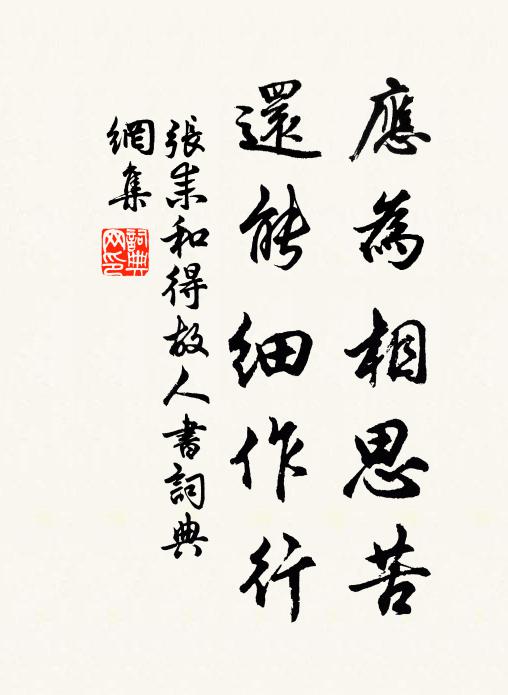 應為相思苦
還能細作行
張耒和得故人書詞典
網集
詞典
网印